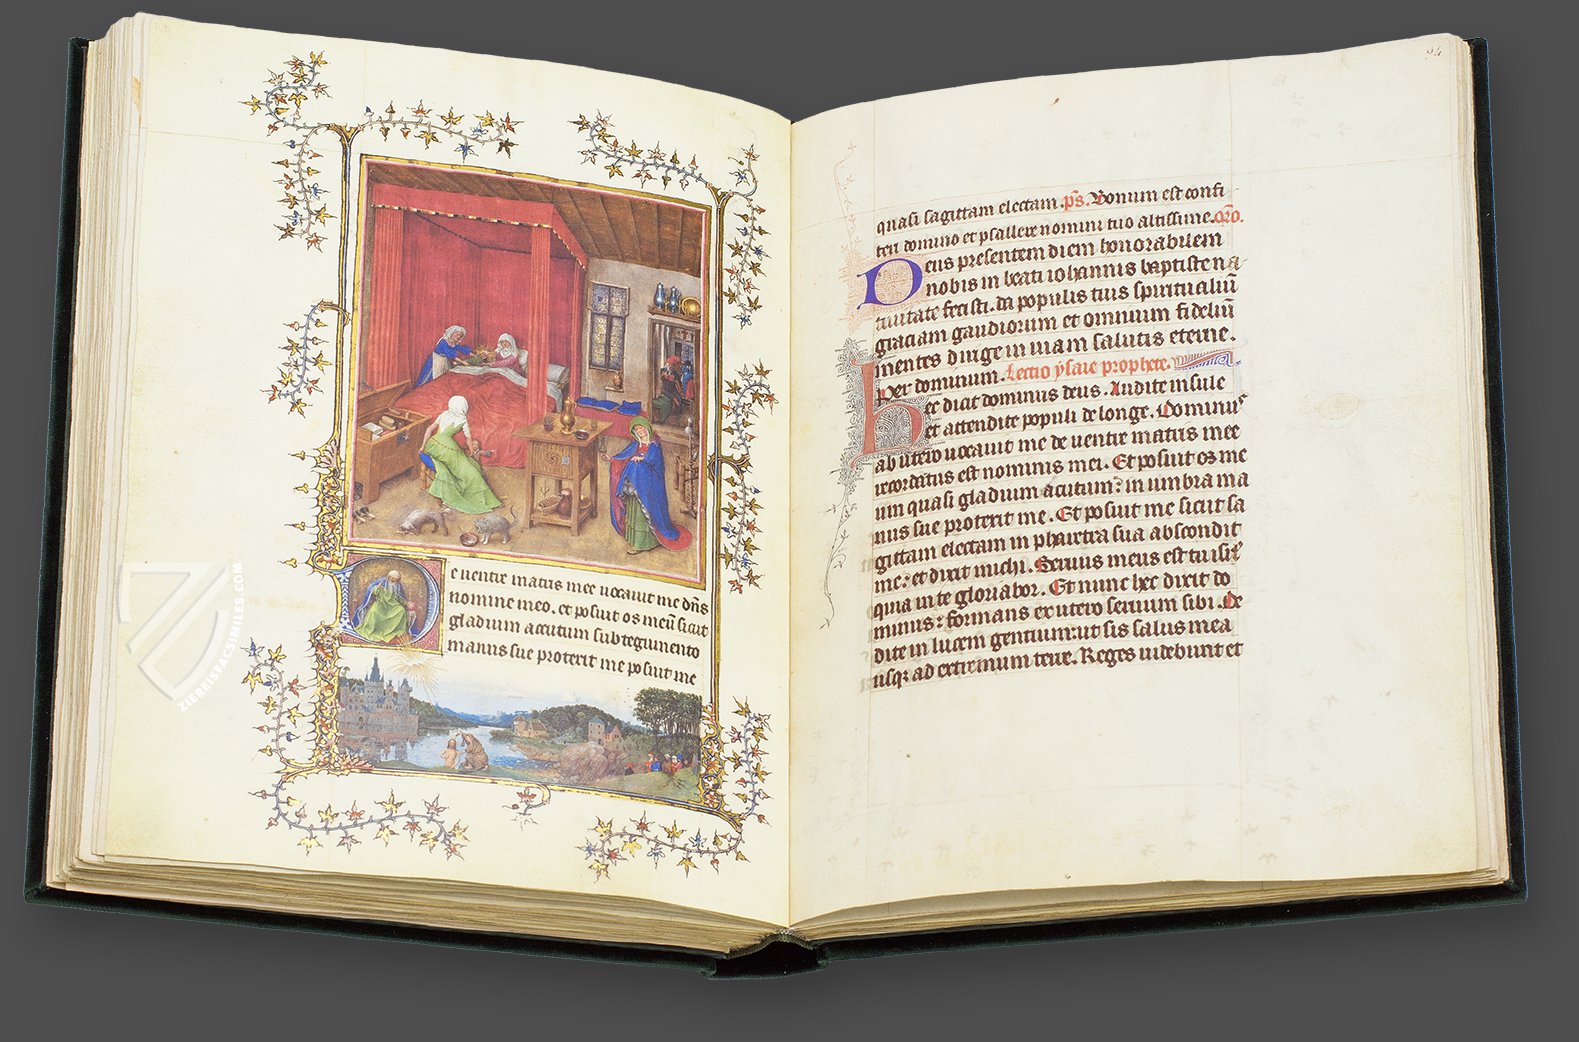 e ventre matris mee vocavit me dn̄s
nomine meo. et posuit os meū sicut
gladium acutum sub tegimento
manus sue protexit me posuit me
quasi sagittam electam. p̄s. Bonum est confi
teri domino et psallere nomini tuo altissime. or̄o.
Deus presentem diem honorabilem
nobis in beati iohannis baptiste na
tivitate fecisti. da populis tuis spiritualiū
graciam gaudiorum et omnium fideliū
mentes dirige in viam salutis eterne.
Per dominum. Lectio ysaie prophete.
Hec dicit dominus deus. Audite insule
et attendite populi de longe. Dominus
ab utero vocavit me de ventre matris mee
recordatus est nominis mei. Et posuit os me
um quasi gladium acutum: in umbra ma
nus sue protexit me. Et posuit me sicut sa
gittam electam in pharetra sua abscondit
me: et dixit michi. Servus meus es tu isr̄l
quia in te gloriabor. Et nunc hec dixit do
minus: formans ex utero servum sibi. De
di te in lucem gentium: ut sis salus mea
usqꝫ ad extremum terre. Reges videbunt et
ZIEREISFACSIMILES.COM